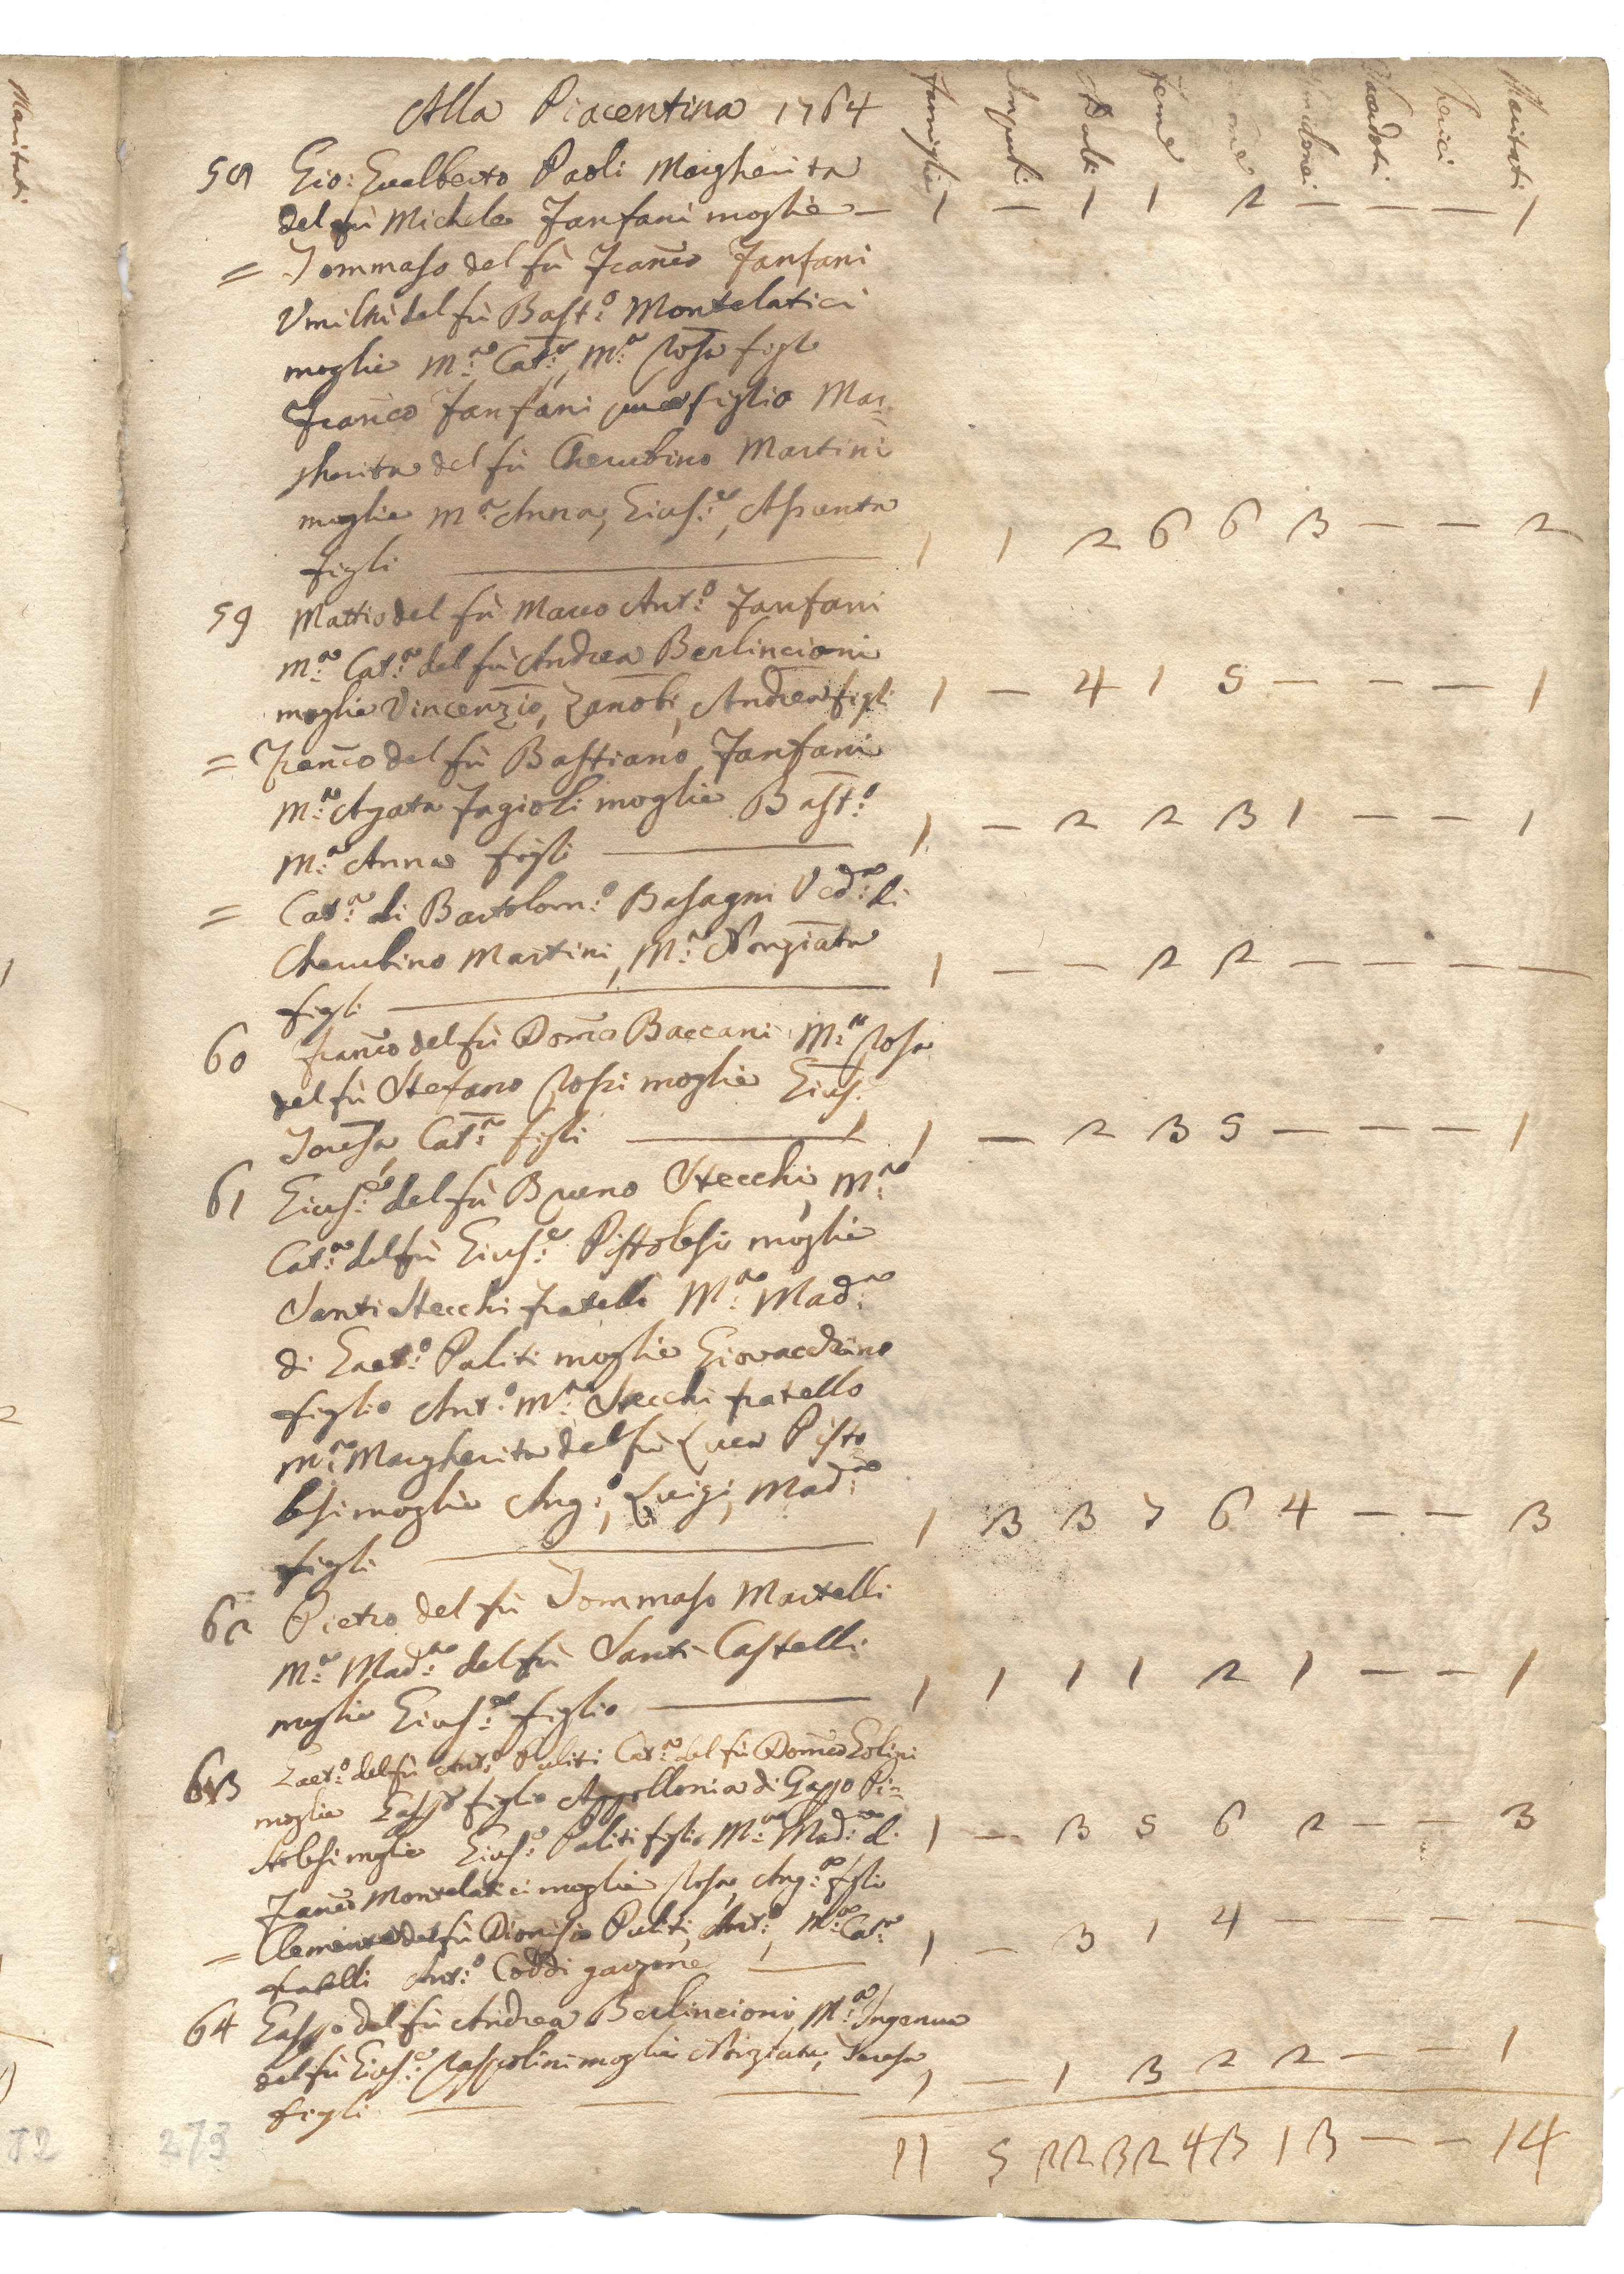 Maritati
Alla Piacentina 1764
Famiglie Impuberi Maschi Femmine Sacerdoti Cherici Maritati
58 Gio: Gualberto Paoli Margherita
del fù Michele Fanfani moglie — 1 — 1 1 2 — — — 1
= Tommaso del fù Franco Fanfani
Umiltà del fù Bast:o Montelatici
moglie M:a Cat:a, M:a Rosa figli
Franco Fanfani figlio Mar=
gherita del fù Cherubino Martini
moglie M:a Anna, Gius:e, Assunta
figli — 1 1 2 6 6 3 — — 2
59 Mattio del fù Marco Ant:o Fanfani
M:a Cat:a del fù Andrea Berlincioni
moglie Vincenzio, Zanobi, Andrea figli 1 — 4 1 5 — — — 1
= Franco del fù Bastiano Fanfani
M:a Agata Fagioli moglie Bast:o
M:a Anna figli — 1 — 2 2 3 1 — — 1
= Cat:a di Bartolom:o Basagni Ved:a di
Cherubino Martini, M:a Nonziata
figli — 1 — — 2 2 — — — —
60 Franco del fù Domco Baccani M:a Rosa
del fù Stefano Rossi moglie Gius:
Teresa, Cat:a figli — 1 — 2 3 5 — — — 1
61 Gius:e del fù Bruno Stecchi, M:a
Cat:a del fù Gius:e Pistolesi moglie
Santi Stecchi fratello M:a Mad:a
di Gaet:o Puliti moglie Giovacchino
figlio Ant:o M:a Stecchi fratello
M:a Margherita del fù Luca Pisto
lesi moglie Ang:o, Luigi, Mad:a
figli — 1 3 3 7 6 4 — — 3
62 Pietro del fù Tommaso Martelli
M:a Mad:a del fù Santi Castelli
moglie Gius:e figlio — 1 1 1 1 2 1 — — 1
63 Gaet:o del fù Ant:o Puliti Cat:a del fù Domco Golini
moglie Gaspo figlio Appollonia di Gaspo Pi=
stolesi moglie Gius:e Puliti figlio M:a Mad:a di 1 — 3 5 6 2 — — 3
Franco Montelatici moglie Rosa, Ang:a figli
= Clemente del fù Dionisio Puliti, Ant:o, M:a Cat:a 1 — 3 1 4 — — — —
fratelli Ant:o Coddi garzone —
64 Gaspo del fù Andrea Berlincioni, M:a Ingenua
del fù Gius:e Raspolini moglie Nunziata, Teresa
figli — — 1 — 1 3 2 2 — — 1
11 5 22 32 43 13 — — 14
273